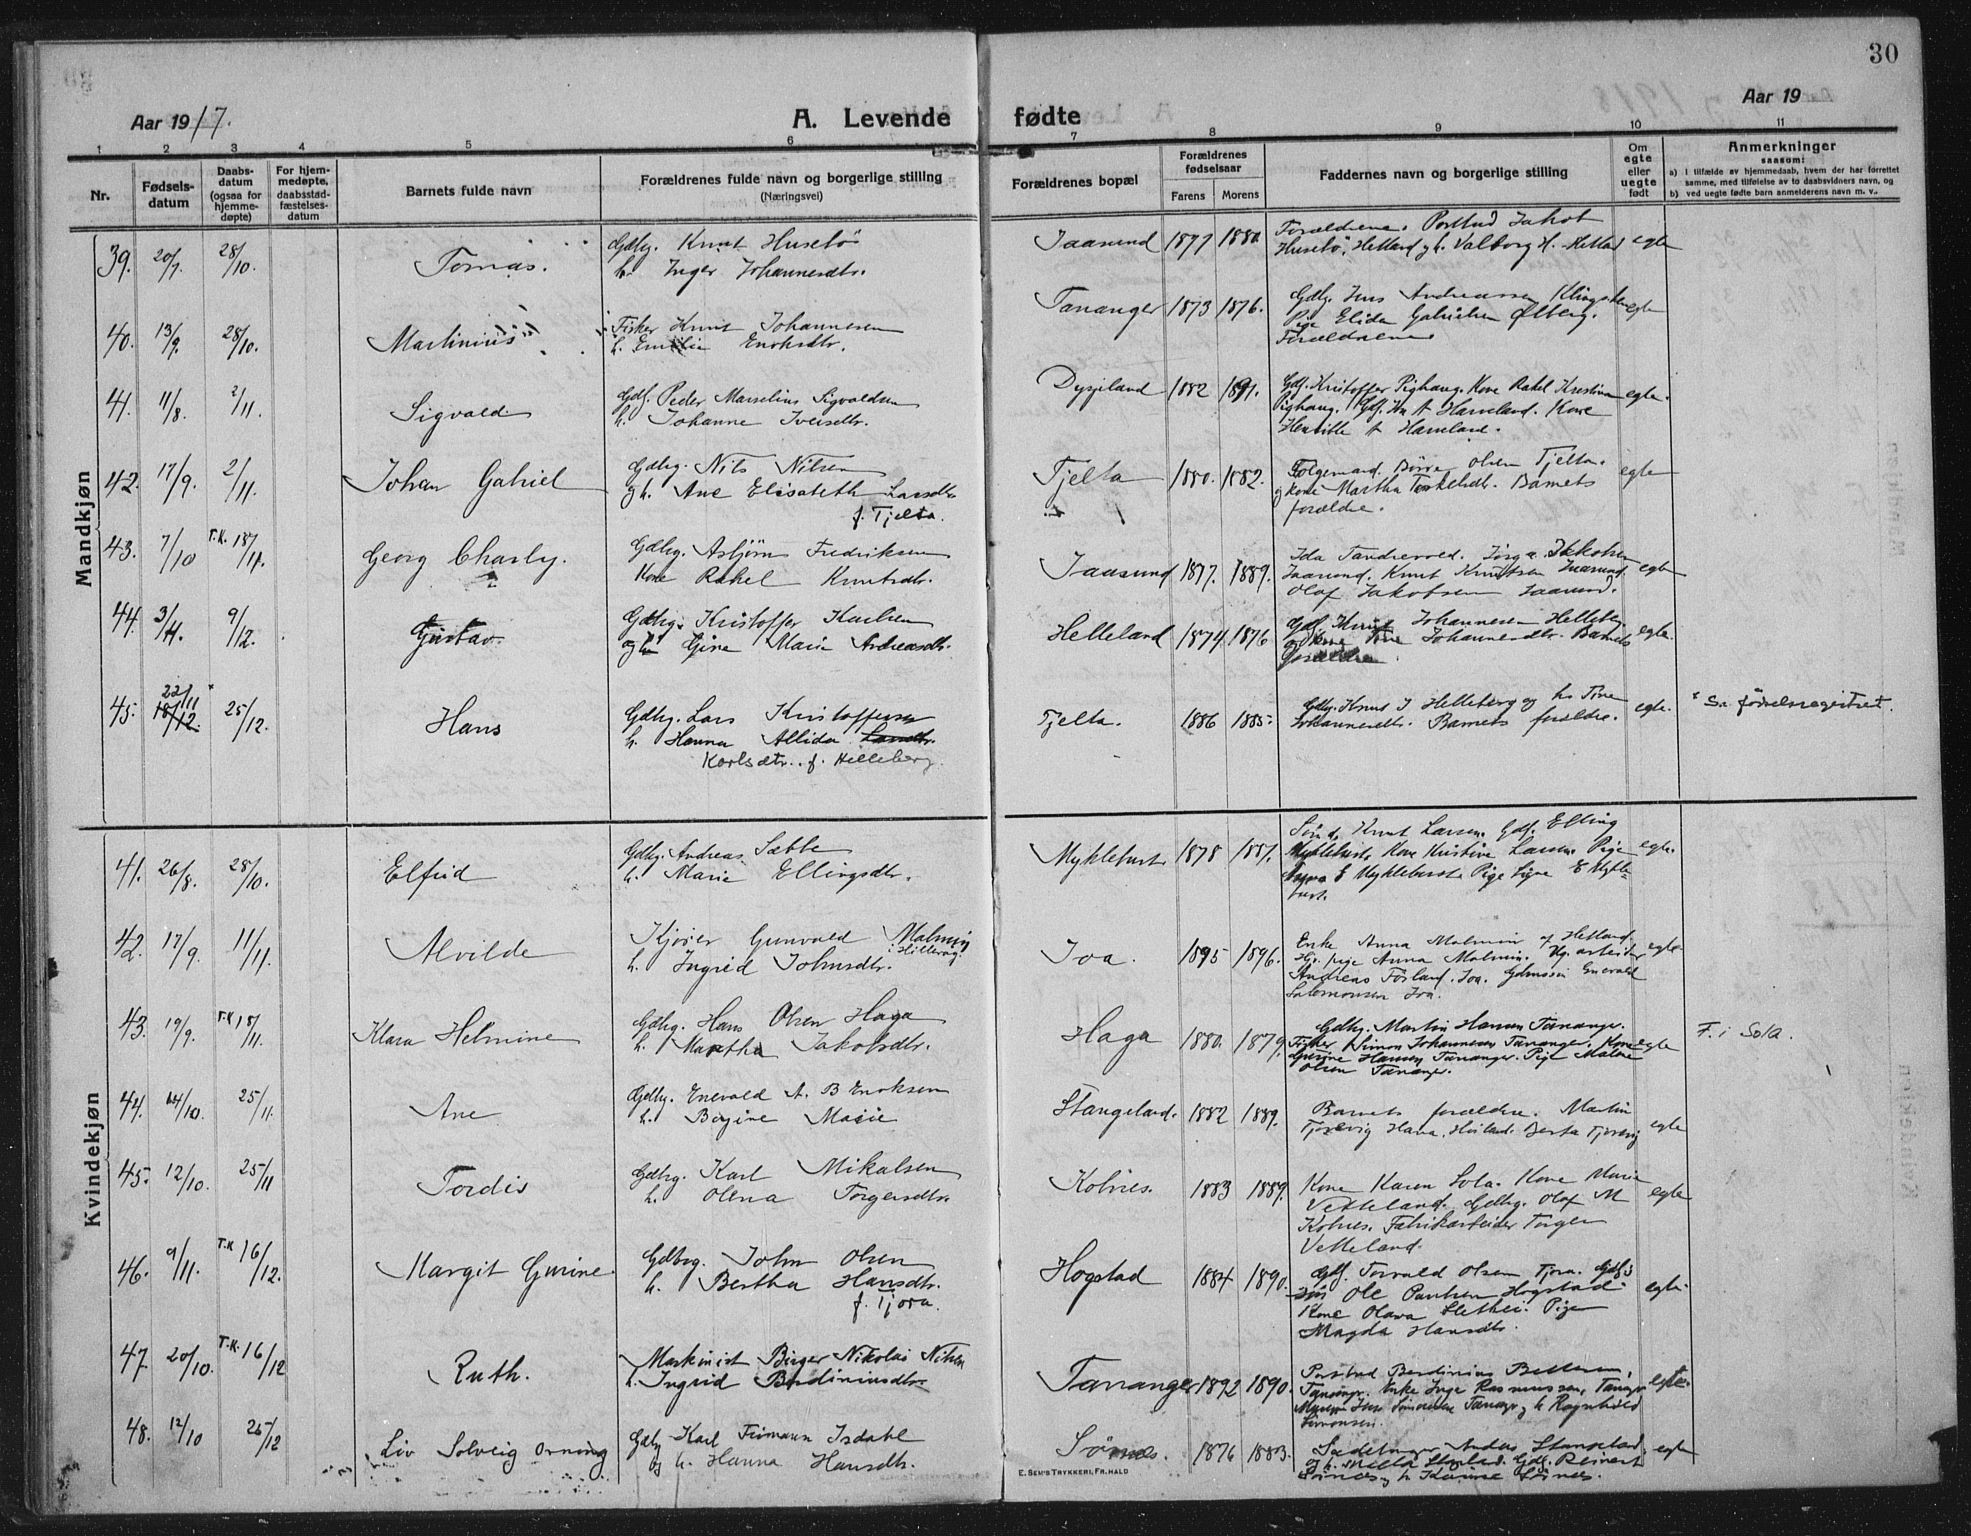 30
Aar 1917.
A. Levende fødte
Aar 19
1 2 3 4 5 6 7 8 9 10 11
Nr.
Fødsels-
datum
Daabs-
datum
(ogsaa for
hjemme-
døpte)
For hjem-
medøpte,
daabsstad-
fæstelses-
datum
Barnets fulde navn
Forældrenes fulde navn og borgerlige stilling
(Næringsvei)
Forældrenes bopæl
Forældrenes
fødselsaar
Farens Morens
Faddernes navn og borgerlige stilling
Om
egte
eller
uegte
født
Anmerkninger
saasom:
a) i tilfælde av hjemmedaab, hvem der har forrettet
samme, med tilføielse av to daabsvidners navn, og
b) ved uegte fødte barn anmelderens navn m. v.
Mandkjøn
39. 20/7. 28/10. Tomas. Gdbg. Knut Husebö
h. Inger Johannesdtr.
Jaasund 1877 1880. Forældrene. Postbud Jakob
Husebö, Hetland og h. Valborg H. Hetland egte
40. 13/9. 28/10. Martinius Fisker Knut Johannesen
h. Emilie Enoksdtr.
Tananger 1873 1876. Gdbg. Jens Andreassen
Pige Elida Gabrielsen Ølberg.
Forældrene egte
41. 11/8. 2/11. Sigvald Gdf. Peder Marselius Sigvaldsen
h. Johanne Iversdtr.
Dysjeland 1882 1891. Gdf. Kristoffer Pighaug. Kone Rakel Kristine
Pighaug. Gdf. A Haveland. Kone
A Haveland. egte.
42. 17/9. 2/11. Johan Gabriel Gdbg. Nils Nilsen
og h. Ane Elisabeth Larsdtr
f. Tjelta.
Tjelta 1880. 1882. Folgemand. Börre Olsen Tjelta.
og kone Martha Torkelsdtr. Barnets
forældre. egte
43. 7/10 T.K. 18/11. Georg Charly. Gdbg. Asbjörn Fredriksen
Kone Rakel Knutsdtr.
Jaasund 1877. 1889. Ida Jakobsen
Jaasund. Knut Knutsen Jaasund.
Olaf Jakobsen Jaasund. egte
44. 3/11. 9/12. Gustav Gdbg. Kristoffer Karlsen
og h. Gine Marie Andreasdtr.
Helleland 1874 1876 Gdf. Knut Johannesen Helleberg
og Kone Tone Johannesdtr. Barnets
forældre egte.
45. 22/11 18/12. * 25/12. Hans Gdbg. Lars Kristoffersen
h. Hanna Allida Larsdtr.
Karlsdtr. f. Helleberg.
Tjelta. 1886 1885. Gdbg. Knut J Helleberg og hs Tone
Johannesdtr. Barnets forældre. egte. * Se fødselsregistret.
Kvindekjøn
41. 26/8. 28/10. Elfrid Gdbg. Andreas Sæbbe
h. Marie Ellingsdtr.
Myklebust 1878 1887. Knut Larsen. Gdf. Elling
Myklebust. Kone Kristine Larsen. Pige
E Myklebust. Pige Signe E Mykle-
bust. egte.
42. 17/9. 11/11. Alvilde Kjører Gunvald Malmin
h. Ingrid Johnsdtr. Hillevåg
Joa. 1895 1896. Enke Anna Malmin af Hetland
pige Anna Malmin. arbeider
Andreas Förland. Joa. Enevald
Salomonsen Joa. egte
43. 19/9. T.K 18/11. Klara Helmine Gdbg. Hans Olsen Haga
h. Martha Jakobsdtr.
Haga 1880. 1879. Gdbg. Martin Hansen Tananger.
Fisker Simon Johannesen Tananger. Kone
Gurine Hansen Tananger. Pige Malene
Olsen Tananger. egte F. i Sola.
44. 14/10. 25/11. Ane Gdbg. Enevald A. B Enoksen
h. Bergine Marie
Stangeland. 1882 1889. Barnets forældre. Martin
Tjorevig Hana. Berta Tjorevig egte
45. 12/10. 25/11 Tordis Gdbrg. Karl Mikalsen
h. Olena Torgersdtr
Kolnes. 1883 1889. Kone Karen Sola. Kone Marie
Vetteland. Gdbrg. Olaf M
Kolnes. Fabrikarbeider Torger
Vetteland. egte
46. 9/11. T.K 16/12. Margit Gurine Gdbrg. John Olsen
h. Bertha Hansdtr.
f. Tjora.
Hogstad 1884 1890. Gdf. Torvald Olsen Tjora. Gdf s
søn Ole Paulsen Hogstad
Kone Olava Slethei. Pige
Magda Hansdtr. egte
47. 20/10. T.K. 16/12 Ruth. Maskinist Birger Nikolai Nilsen
h. Ingrid Berdiniusdtr
Tananger 1892 1890. Postbud Berdinius
Tananger. Enke Inge Rasmussen, Tananger
Tananger og h Ragnhild
Simonsen. egte.
48. 12/10 26/12 Liv Solveig Orning Gdbg Karl Fimann Isdahl
og h. Hanna Hansdtr.
Sörnes. 1876 1883. Sadelmager Andas Stangeland
og h. Gdbg. Reinert
Sörnes og h Karine Sörnes. egte
E. SEM'S TRYKKERI, FR.HALD